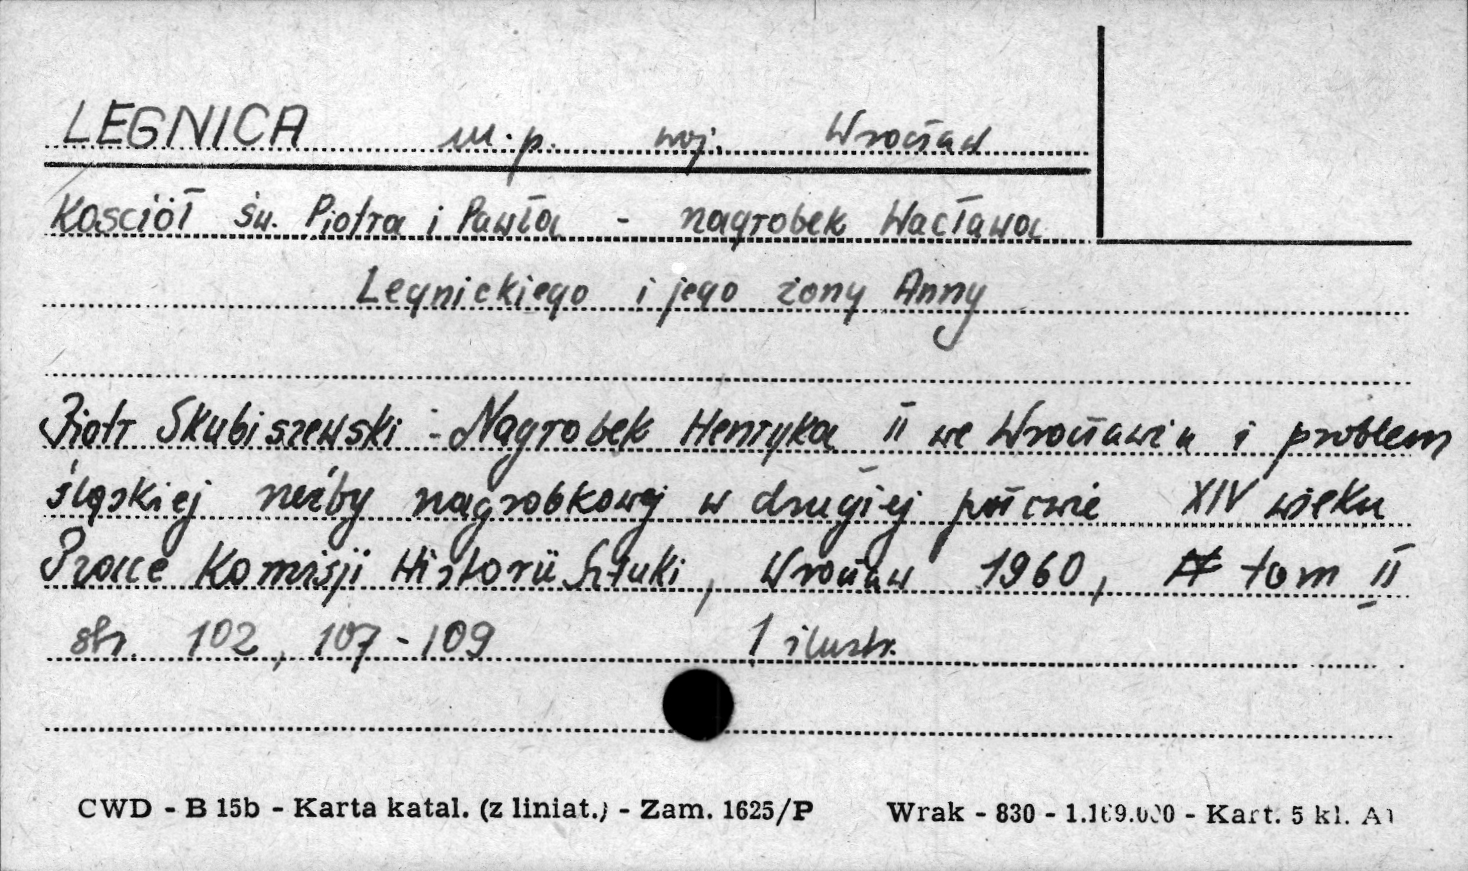 LEGNICA m.p. woj. Wrocław
Kościół św. Piotra i Pawła - nagrobek Wacława
Legnickiego i jego żony Anny
Piotr Skubiszewski - Nagrobek Henryka II we Wrocławiu i problem
śląskiej rzeźby nagrobkowej w drugiej połowie XIV wieku
Prace Komisji Historii Sztuki, Wrocław 1960, tom II
str. 102, 107-109 1 ilustr.
CWD - B 15b - Karta katal. (z liniat.) - Zam. 1625/P Wrak - 830 - 1.169.000 - Kart. 5 kl. A1